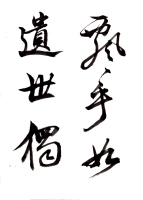 飄乎如
遺世獨